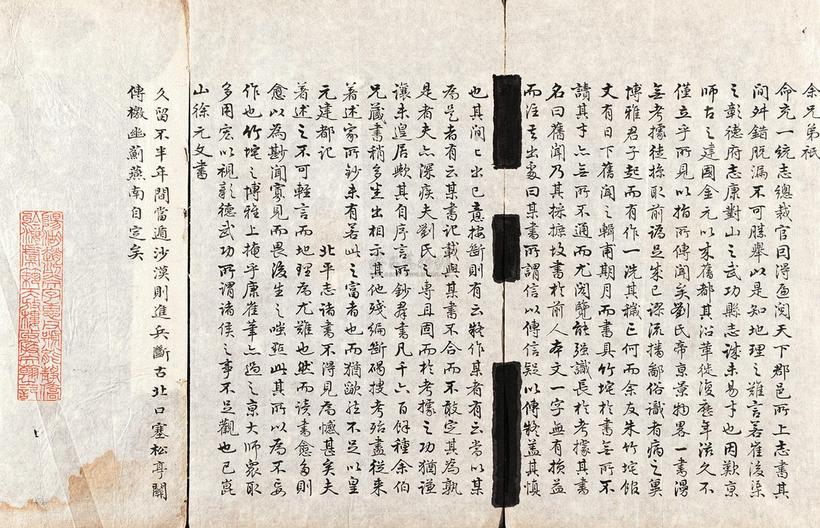 余兄弟祇
命充一統志總裁官因得遍閱天下郡邑所上志書其
間舛錯脫漏不可勝舉以是知地理之難言若崔後渠
之彰德府志康對山之武功縣志誠未易才也因歎京
師古之建國金元以來舊都其沿革徙復歷年滋久不
僅立乎所見以指所傳聞矣劉氏帝京景物畧一書漫
無考據徒採取前流播鄙俗識者病之冀
博雅君子起而有作一洗其穢已何而余友朱竹垞館
文有日下舊聞之輯甫期月而書具竹垞於書無所不
讀其才亦無所不通而尤閎覽能強識長於考據其書
名曰舊聞乃其採摭故書於前人本文一字無有損益
而注其出處曰某書所謂信以傳信疑以傳疑蓋其慎
也其間亡出己意擅斷則有云疑作某者有云當以某
為是者有云某書記載與某書不合而不敢定其為孰
是者夫亦深疾夫劉氏之專且固而於考據之功猶謙
讓未皇居歟其自序言所鈔羣書凡千六百餘種余伯
兄藏書稍多悉出相示其他殘編斷碣搜考殆盡從來
著述家所鈔未有若此之富者也而猶歉然不足以皇
元建都記 北平志諸書不得見為憾甚矣夫
著述之不可輕言而地理為尤難也然而讀書愈多則
愈以為尠聞寡見而畏後生之嗤點此其所以為不妄
作也竹垞之博雅上掩乎康崔筆亦過之京大師衆取
多用宏以視彰德武功所謂諸侯之事不足觀也已崑
山徐元文書
久留不半年間當遁沙漠則進兵斷古北口塞松亭關
傳檄幽薊燕南自定矣